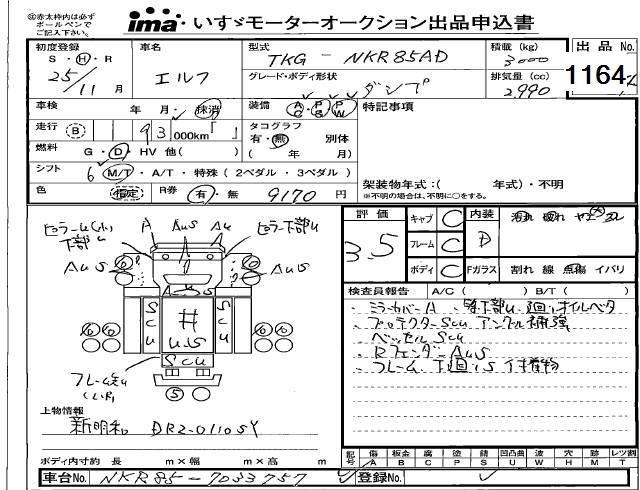 ㊟赤太枠内は必ず
ボールペンで
ご記入下さい。
ima いすゞモーターオークション出品申込書
初度登録
S・H・R
25/11月
車名
エルフ
型式
TKG-NKR85AD
グレード・ボディ形状
ダンプ
積載(kg)
3000
排気量(cc)
2990
出品No.
1164
車検 年 月・抹消
装備 AC PS PW
特記事項
走行 B 93 000km
タコグラフ
有・無 別体
( 年 月)
燃料 G・D・HV 他( )
シフト 6 M/T・A/T・特殊(2ペダル・3ペダル)
色 指定 R券 有・無 9170円
架装物年式:( 年式)・不明
※不明の場合は、不明に○をする。
評価
3.5
キャブ C
フレーム C
ボディ C
内装 D
Fガラス 割れ 線 点傷 イバリ
ピラーU(小) A AUS AU ピラー下部U
下部U
AUS AUS
6 6
AUS
SCU # SCU
US
6 6
SCU
フレーム
5
検査員報告 A/C( ) B/T( )
・ミラーカバーA
・プロテクターSCU アングル補強
・ベッセルSCU
・RフェンダーAUS
・フレーム下廻りS
上物情報
新明和 DR2-01105Y
ボディ内寸約 長 m×幅 m×高 m
記号 傷 板金 腐 塗 錆 凹凸曲 波 穴 跡 レツ割
A B C P S U W H M T
車台No. NKR85-7033757
登録No.